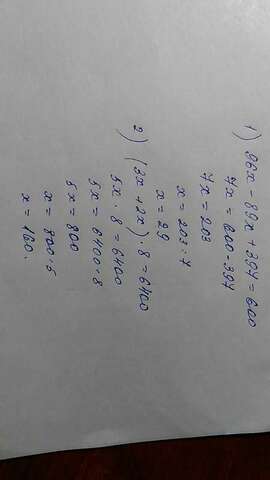 1) 96x - 89x + 397 = 600
7x = 600 - 397
7x = 203
x = 203 : 7
x = 29
2) (3x + 2x) · 8 = 6400
5x · 8 = 6400
5x = 6400 : 8
5x = 800
x = 800 : 5
x = 160.